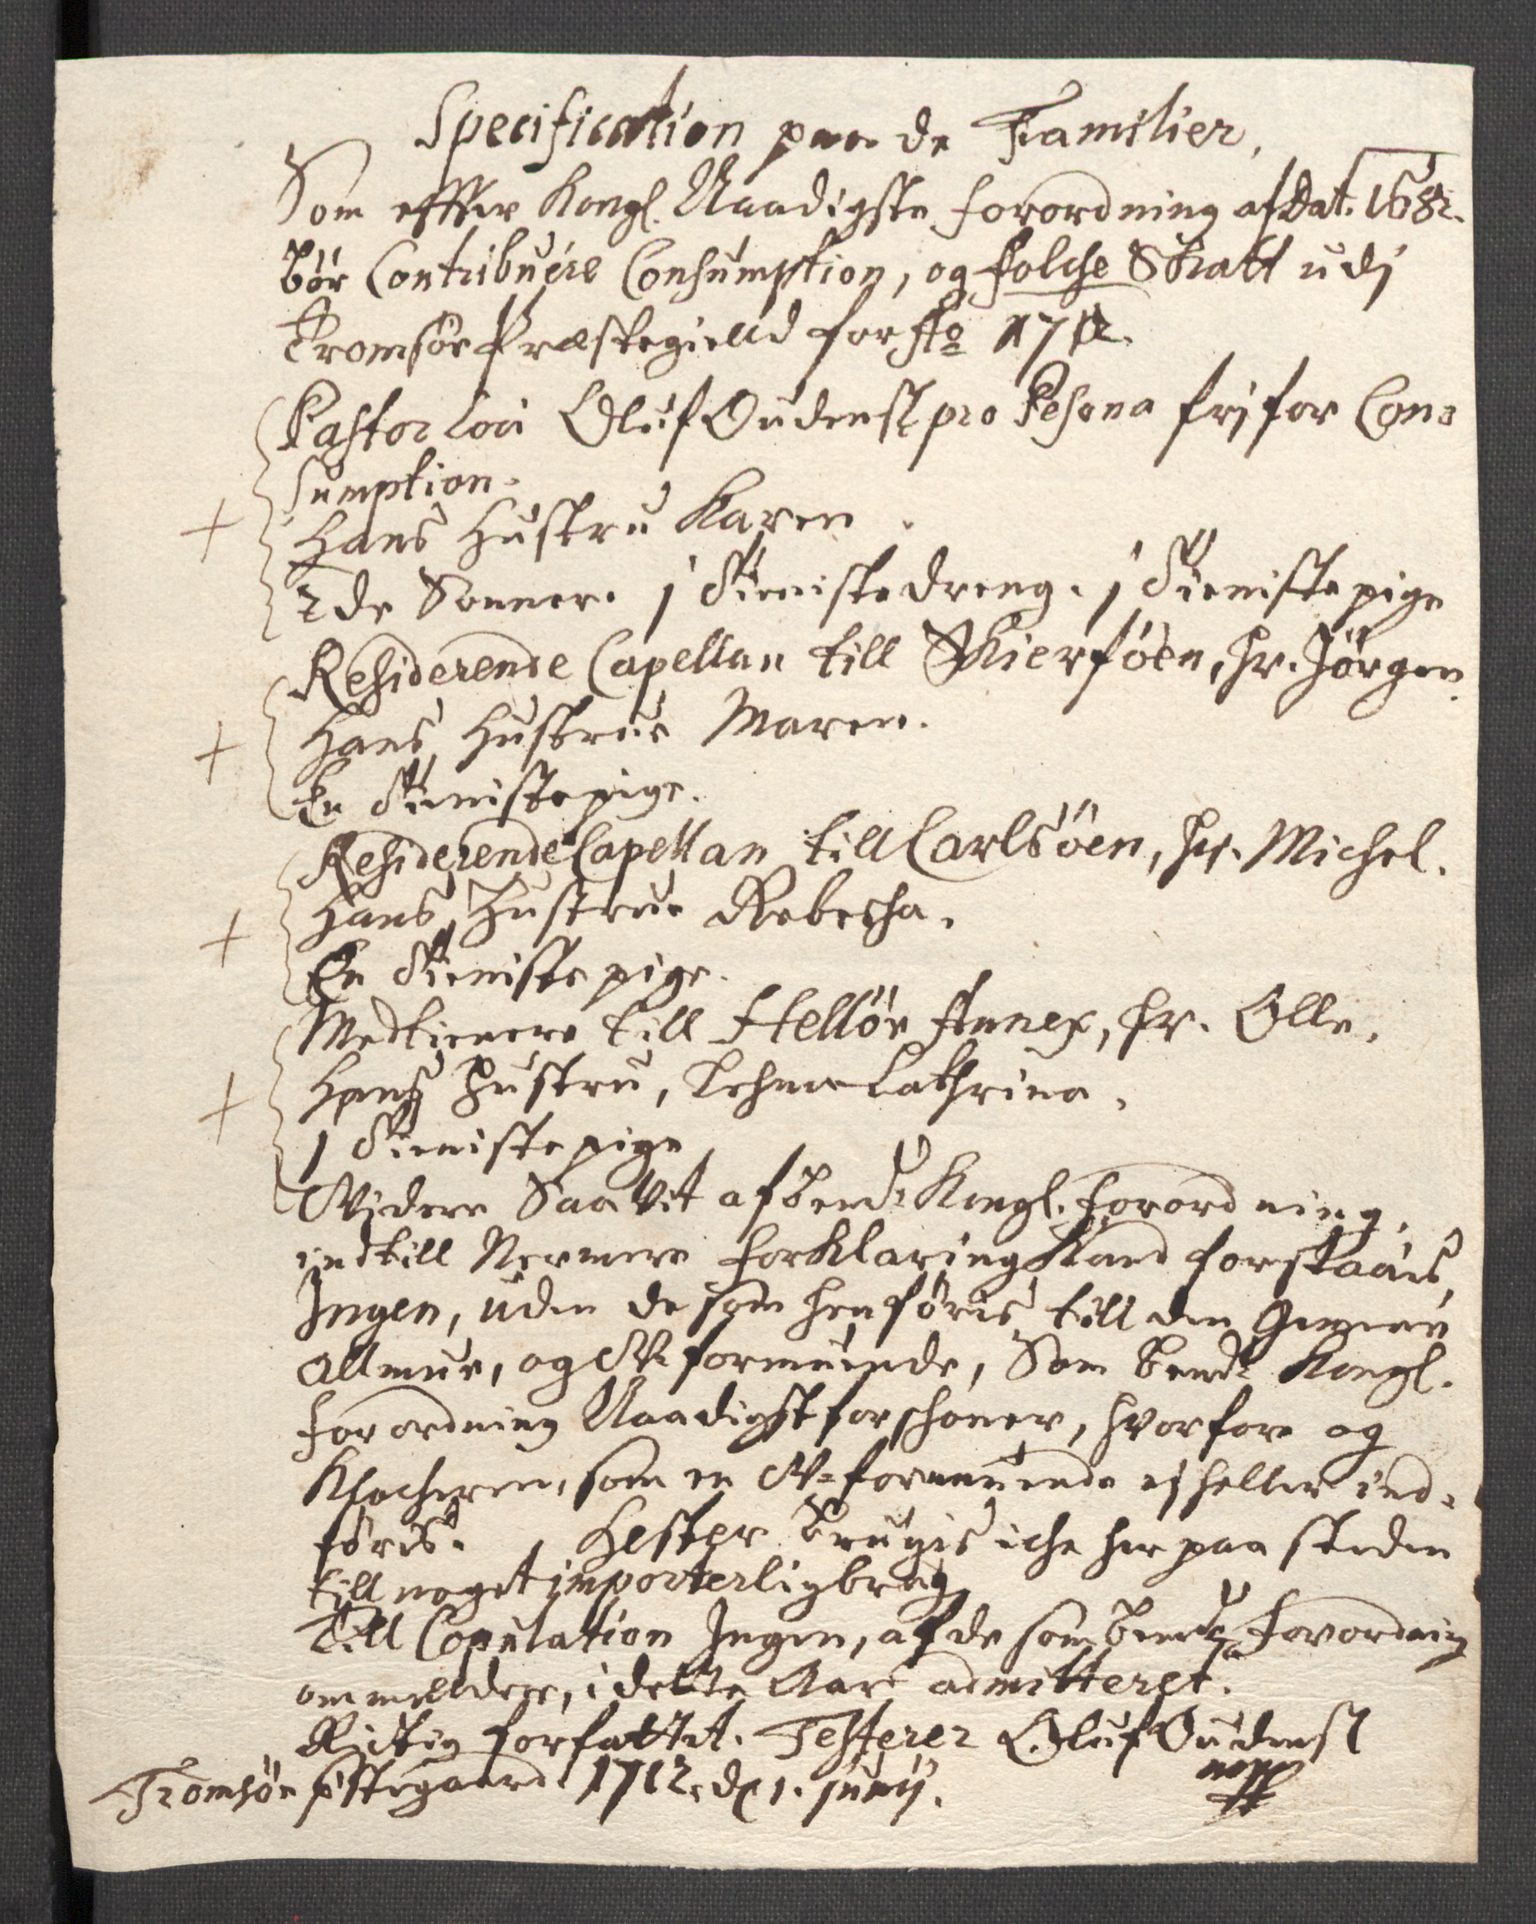 Specification paa de Familier,
Som effter Kongl. Naadigste forordning af Dat. 1682.
bör Contribuere Consumption, og folche Skatt udj
Tromsöe Præstegielld for Ao 1712.
Pastor Loci Oluf Oudensl pro Pesona frj for Con=
sumption.
Hans Hustru Karen.
2de Sønner. 1 Tieniste dreng. 1 Tieniste pige
Residerende Capellan till Skierföen, Hr. Jörgen
Hans Hustrue Maren.
En Tieniste pige.
Residerende Capellan till Carlsöen, Hr. Michel.
Hans Hustrue Rebecha.
En Tieniste pige.
Medtienere till Hellöe Annex, Hr. Olle.
Hans Hustru, Cathrina.
1 Tieniste pige
Videre Saa vit af bemte Kongl. forordning,
indtill Nermere forklaring kand forstaais,
Ingen, uden de som henföris till den Gemene
Allmue, og Uformuende, Som bemte Kongl.
forordning Naadigst forschoner, hvorfore og
Klocheren, som en Uformuende ej heller ind=
föris. Hester brugis iche her paa steden
till noget importerlig brug
Till Copulation Ingen, af de som bemte forordning
ommellder, i dette Aar admitteret.
Rigtig forfattet. Testerer Oluf Oudensl
Tromsöe pstegaard 1712. d 1. Junij.
mpp